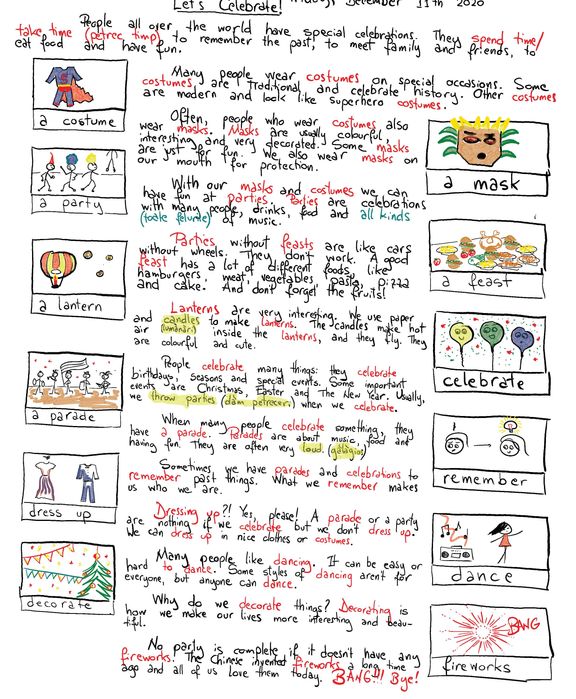 Let's Celebrate! Friday, December 11th 2020
People all over the world have special celebrations. They spend time/
take time (petrec timp) to remember the past, to meet family and friends, to
eat food and have fun.
Many people wear costumes on special occasions. Some
costumes, are traditional and celebrate history. Other costumes
are modern and look like superhero costumes.
a costume
Often, people who wear costumes also
wear masks. Masks are usually colourful,
interesting and very decorated. Some masks
are just for fun. We also wear masks on
our mouth for protection.
a mask
a party
With our masks and costumes we can
have fun at parties. Parties are celebrations
with many people, drinks, food and all kinds
(toate felurile) of music.
Parties without feasts are like cars
without wheels. They don't work. A good
feast has a lot of different foods, like
hamburgers, meat, vegetables pasta, pizza
and cake. And don't forget the fruits!
a feast
a lantern
Lanterns are very interesting. We use paper
and candles to make lanterns. The candles make hot
air (lumânări) inside the lanterns, and they fly. They
are colourful and cute.
celebrate
People celebrate many things: they celebrate
birthdays, seasons and special events. Some important
events are Christmas, Easter and The New Year. Usually,
we throw parties (dăm petreceri) when we celebrate.
a parade
When many people celebrate something, they
have a parade. Parades are about music, food and
having fun. They are often very loud. (gălăgios)
remember
Sometimes, we have parades and celebrations to
remember past things. What we remember makes
us who we are.
dress up
Dressing up?! Yes, please! A parade or a party
are nothing if we celebrate but we don't dress up.
We can dress up in nice clothes or costumes.
dance
Many people like dancing. It can be easy or
hard to dance. Some styles of dancing arent for
everyone, but anyone can dance.
decorate
Why do we decorate things? Decorating is
how we make our lives more interesting and beau-
tiful.
BANG
fireworks
No party is complete if it doesn't have any
fireworks. The Chinese invented fireworks a long time
ago and all of us love them today. BANG!!! Bye!